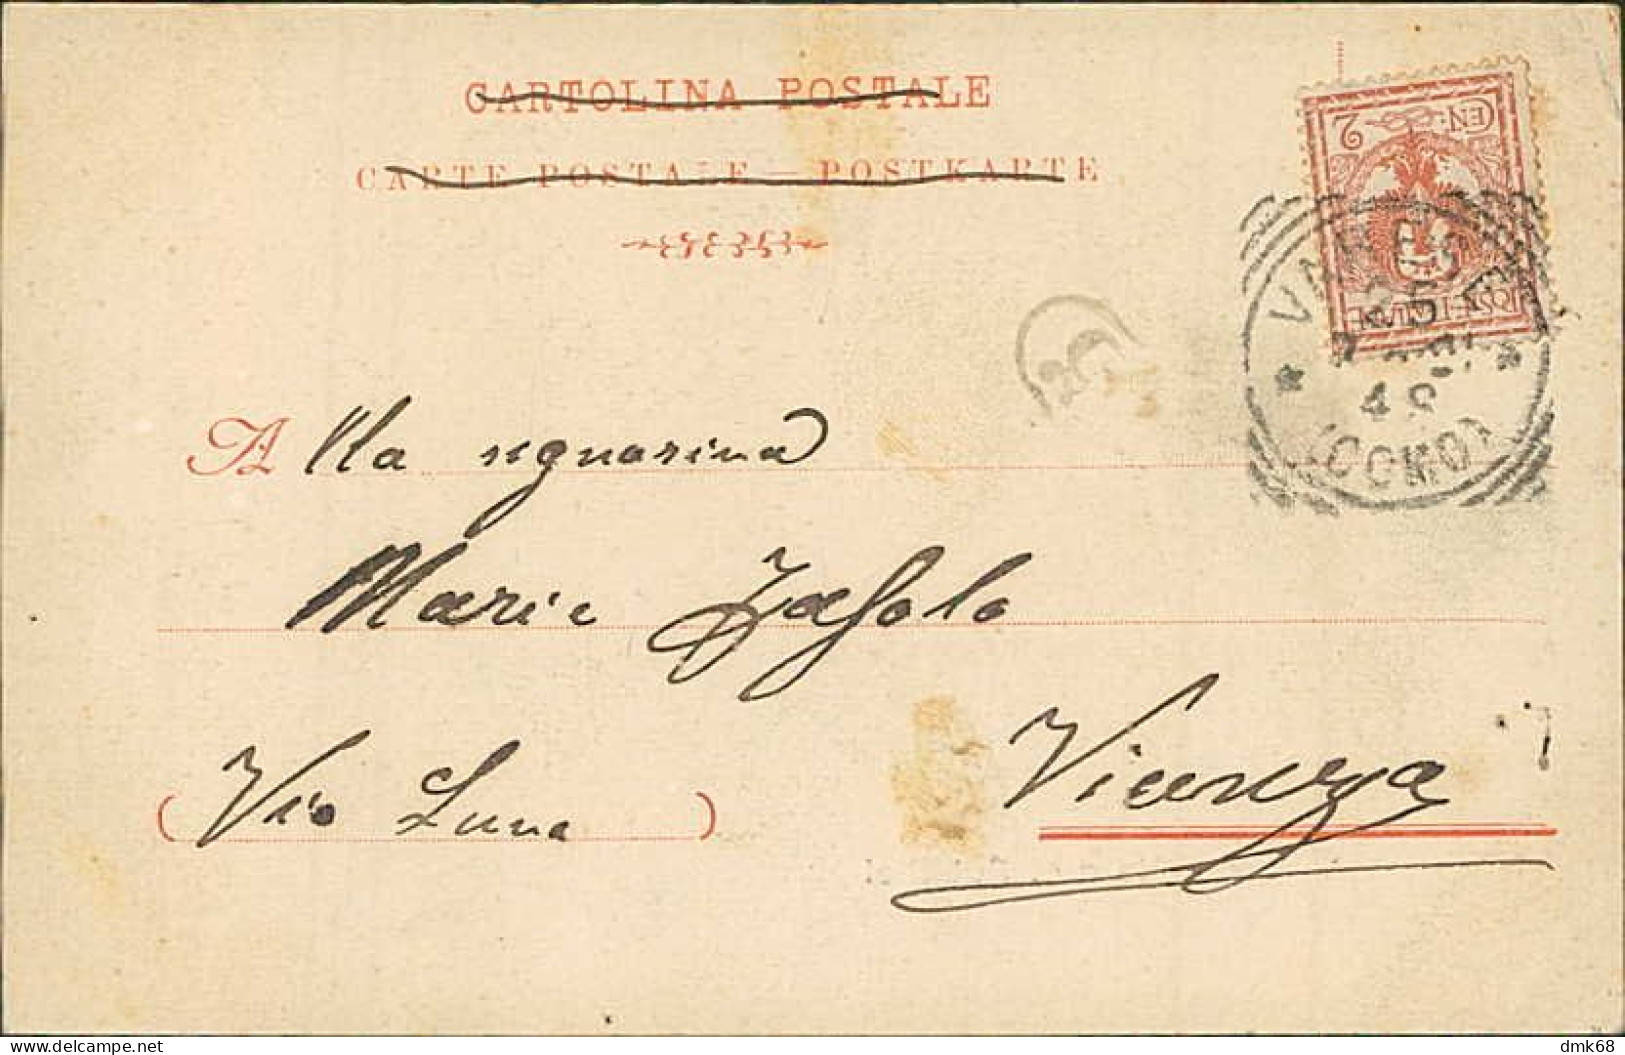 CARTOLINA POSTALE
CARTE POSTALE — POSTKARTE
CEN. 2
POSTE ITALIANE
VARESE
4 S
(COMO)
Alla signorina
Maria
Via Luna
Vicenza
delcampe.net
dmk68